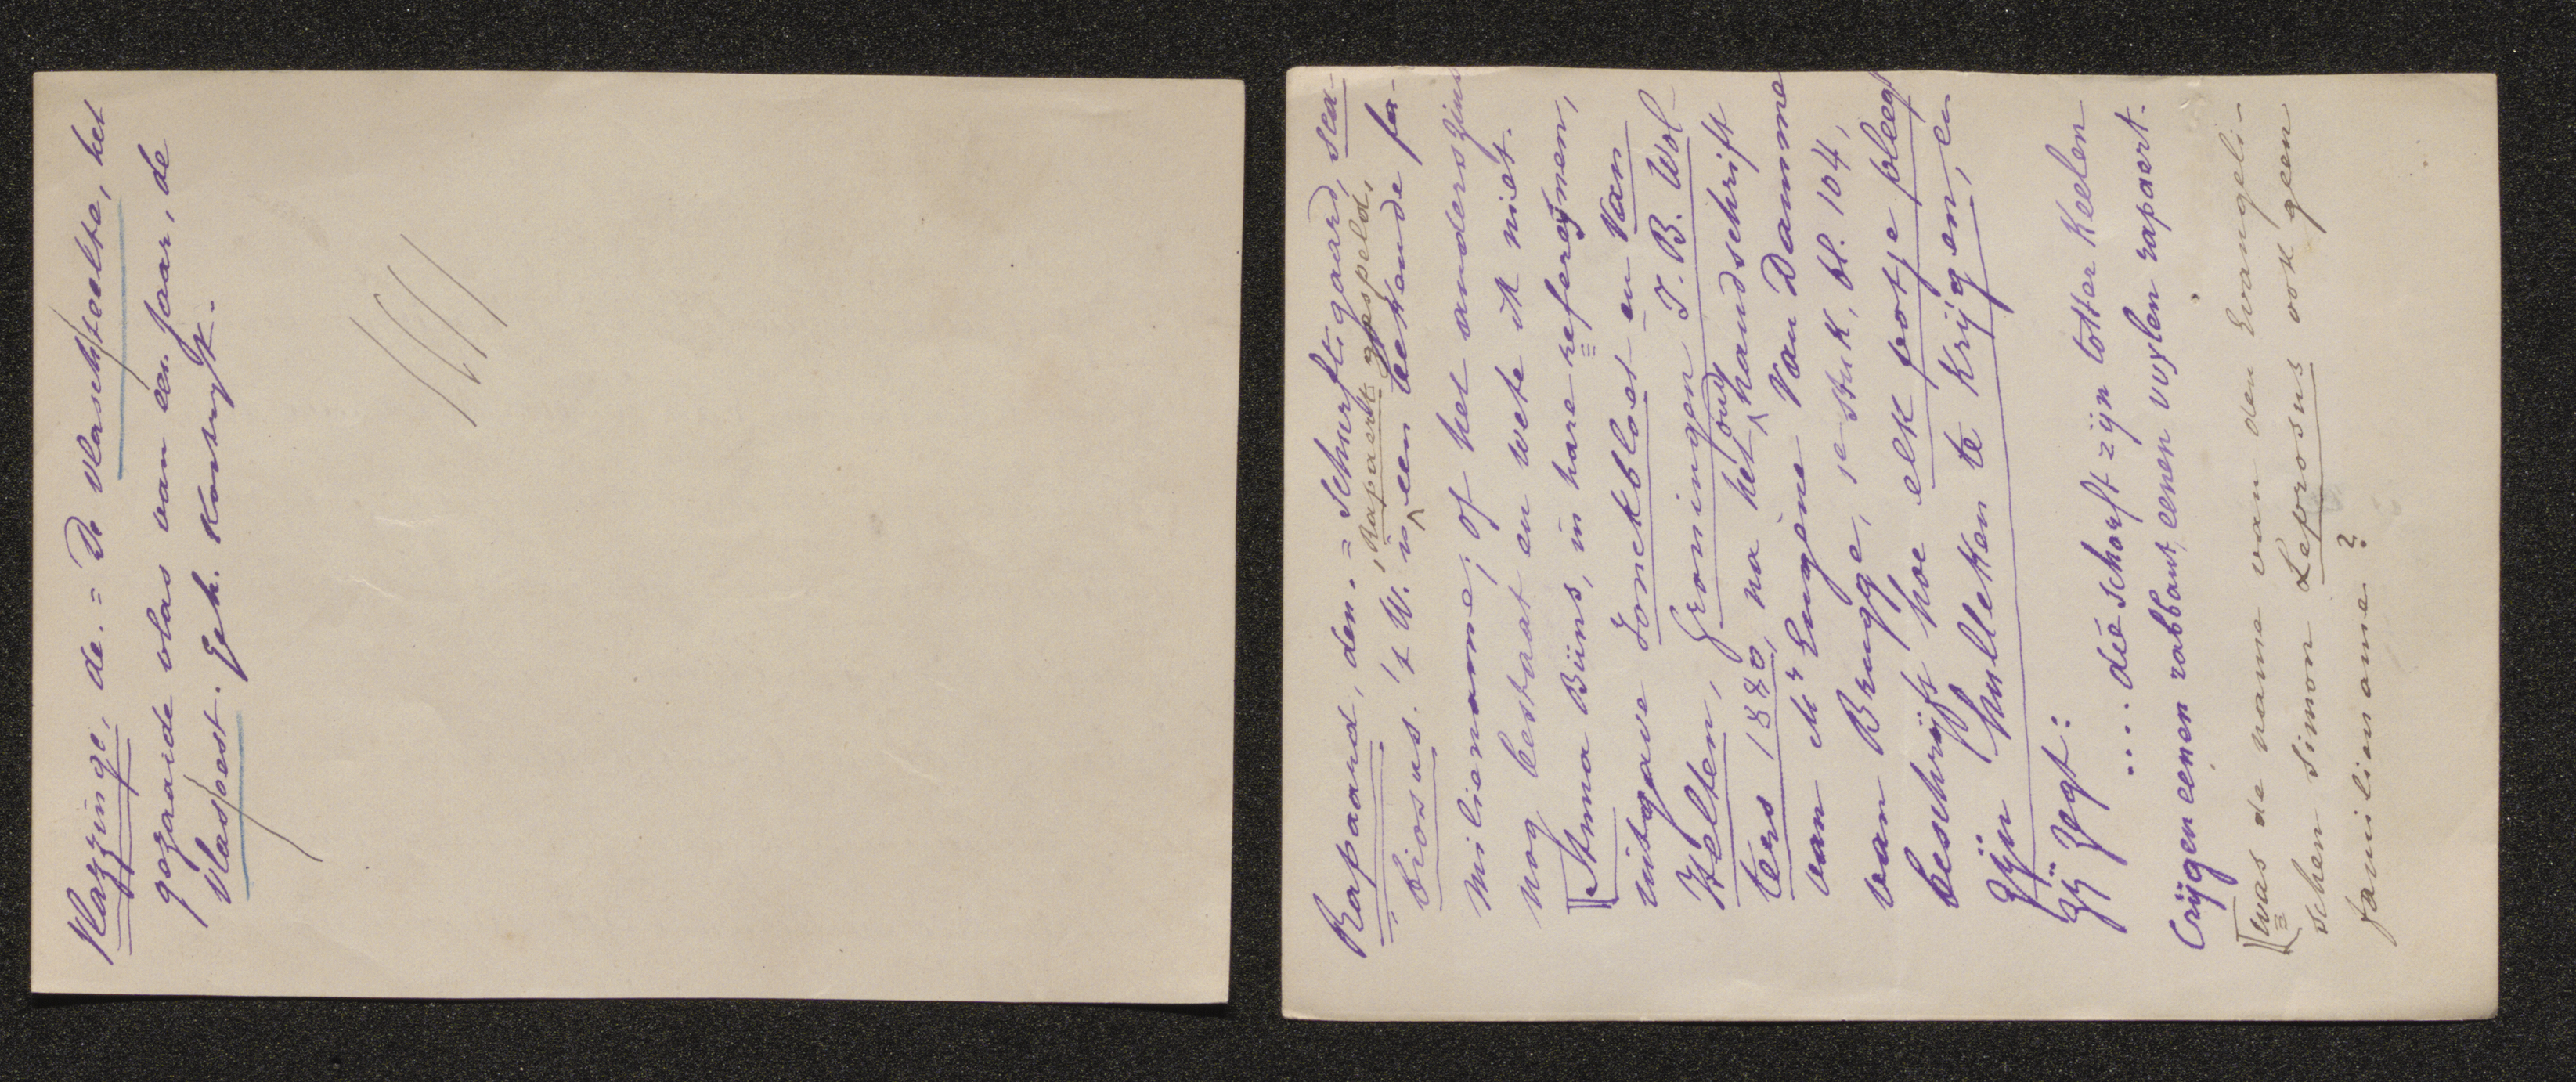 Vlazzinge, de. = De vlaschteelte, het
gezaaide vlas van een jaar, de
vlasoest. Geh. Kortryk.
Rapaard, den. = Schurftigaard, sca-
biosus. 't W. is ^ , Rapaert gespeld, een bekende fa-
milienamme; of het anderszins
nog bestaat en wete ik niet.
Anna Bijns, in hare refereynen,
uitgave Jonckbloet en Van
Helten, Groningen J.B. Wol-
ters 1880, na het ^ oud handschrift
van Mr Eugène Van Damme
van Brugge, 1e stuk, bl. 104,
beschrijft hoe elk potje pleegt
zijn hulleken te krijgen, en
zij zegt:
.... die schorft zijn totter keelen
Crijgen eenen rabbaut, eenen vuylen rapaert.
[was de name van den Evangeli-
schen Simon Leprosus ook geen
familienamme?